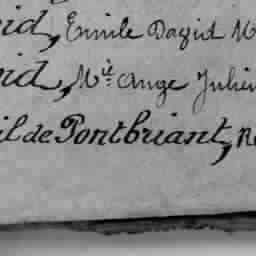 id, Emile David M
id, Mie Ange Julien
il de Pontbriant, Re